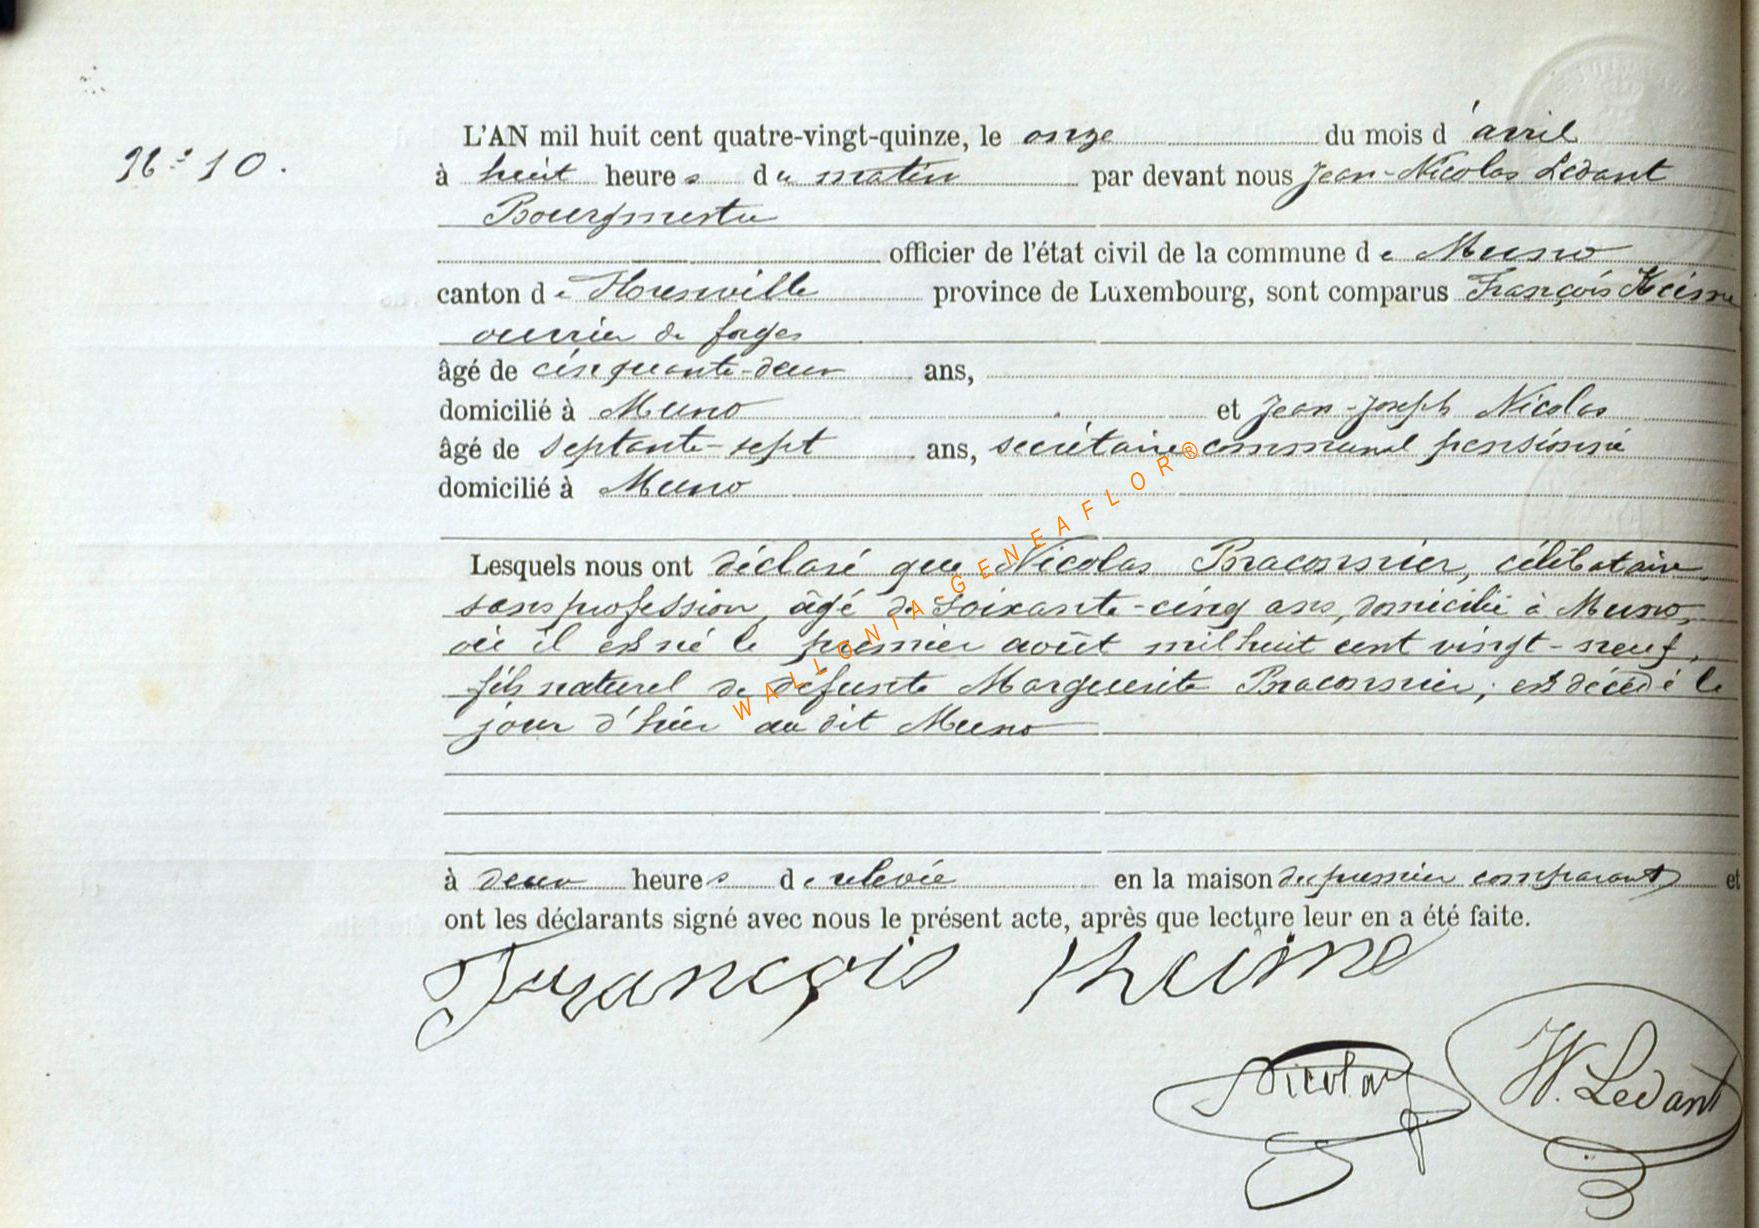 N° 10.
L'AN mil huit cent quatre-vingt-quinze, le onze du mois d'avril
à huit heures du matin par devant nous Jean-Nicolas Ledant
Bourgmestre
officier de l'état civil de la commune de Muno
canton de Florenville province de Luxembourg, sont comparus François
ouvrier de forges
âgé de cinquante-deux ans,
domicilié à Muno et Jean-Joseph Nicolas
âgé de septante-sept ans, secrétaire communal pensionné
domicilié à Muno
Lesquels nous ont déclaré que Nicolas Braconnier, célibataire,
sans profession, âgé de soixante-cinq ans, domicilié à Muno,
où il est né le premier août mil huit cent vingt-neuf,
fils naturel de défunte Marguerite Braconnier; est décédé le
jour d'hier au dit Muno
à deux heures de relevée en la maison du premier comparant et
ont les déclarants signé avec nous le présent acte, après que lecture leur en a été faite.
François
Nicolas
N. Ledant
WALLONIA-GENEAFLOR®